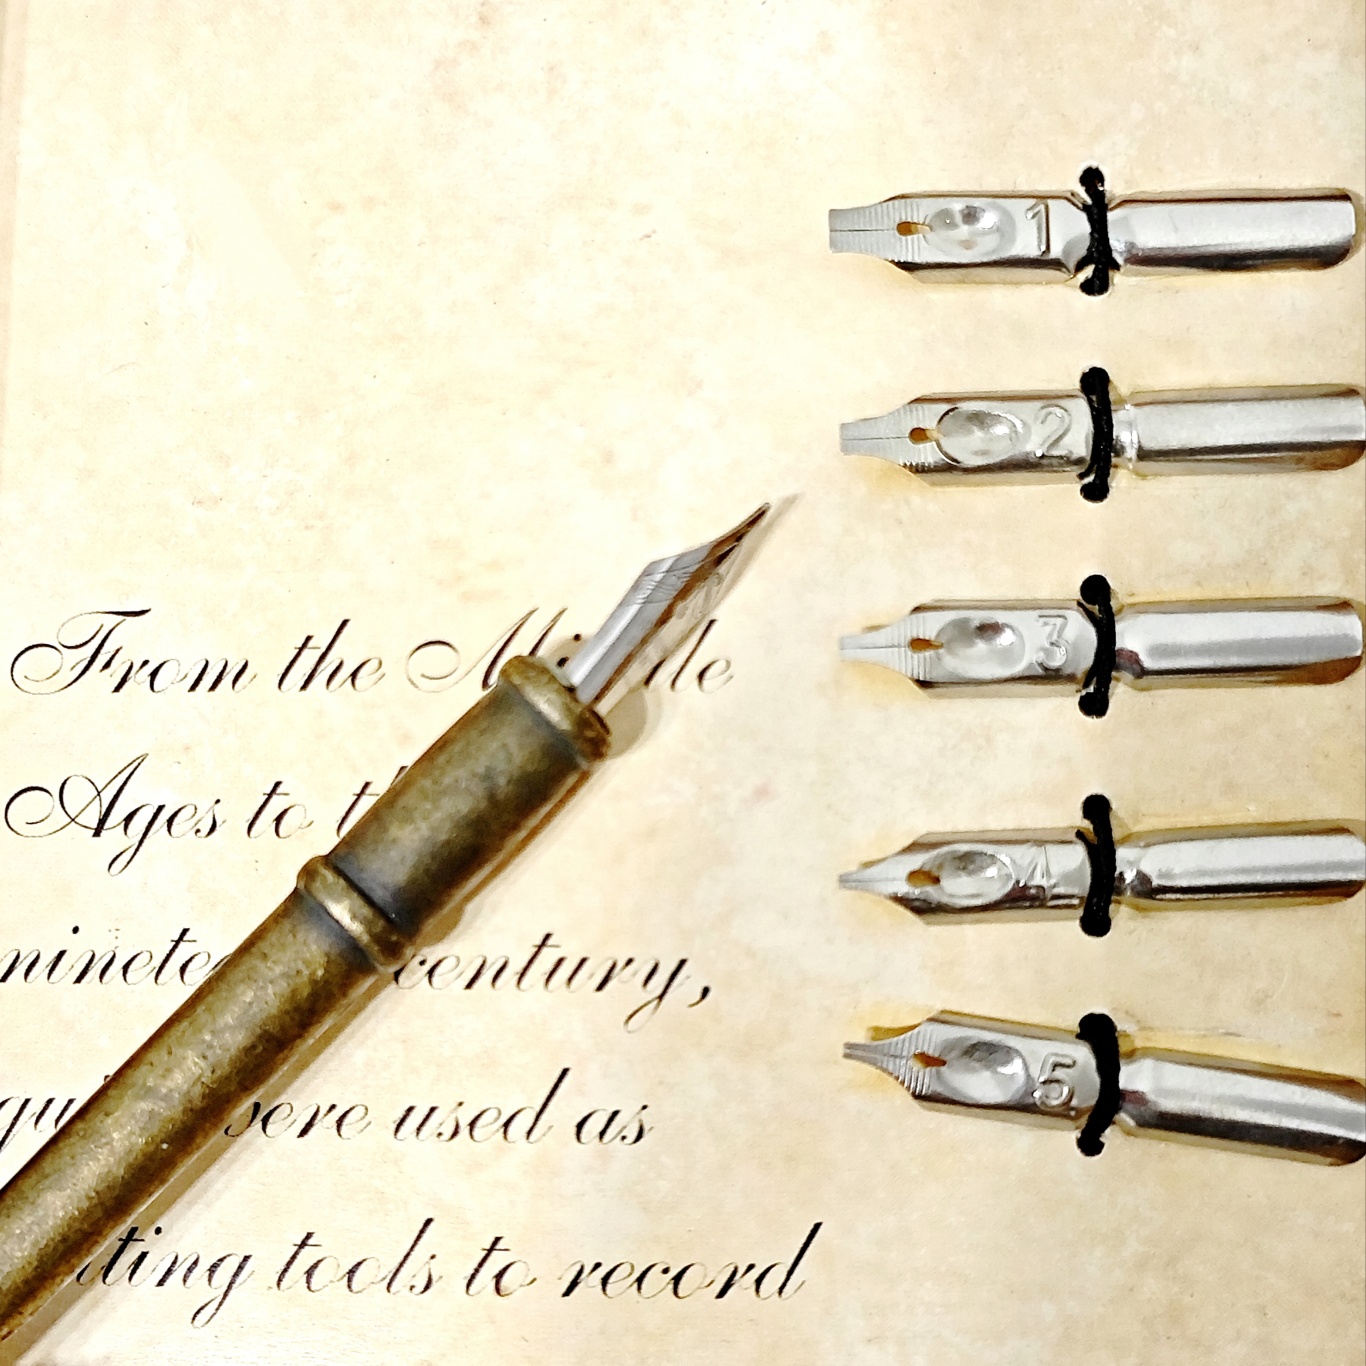 From the Middle
Ages to t
ninete century,
qu were used as
ting tools to record
1
2
3
4
5